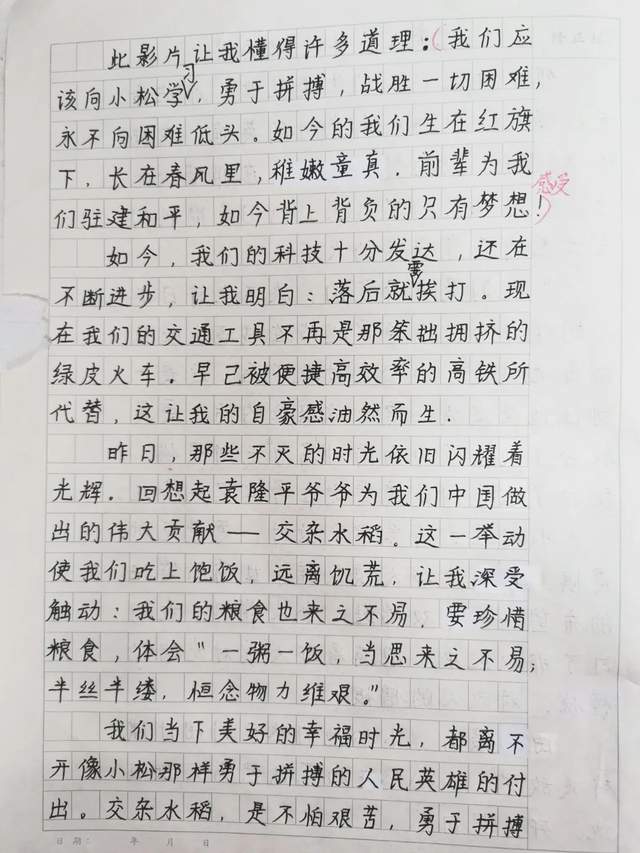 此影片让我懂得许多道理：（我们应
该向小松学习，勇于拼搏，战胜一切困难，
永不向困难低头。如今的我们生在红旗
下，长在春风里，稚嫩童真．前辈为我
们驻建和平，如今背上背负的只有梦想！）感受
如今，我们的科技十分发达，还在
不断进步，让我明白：落后就要挨打。现
在我们的交通工具不再是那笨拙拥挤的
绿皮火车．早已被便捷高效率的高铁所
代替，这让我的自豪感油然而生．
昨日，那些不灭的时光依旧闪耀着
光辉．回想起袁隆平爷爷为我们中国做
出的伟大贡献——交杂水稻。这一举动
使我们吃上饱饭，远离饥荒，让我深受
触动：我们的粮食也来之不易，要珍惜
粮食，体会"一粥一饭，当思来之不易，
半丝半缕，恒念物力维艰。"
我们当下美好的幸福时光，都离不
开像小松那样勇于拼搏的人民英雄的付
出。交杂水稻，是不怕艰苦，勇于拼搏
日期： 年 月 日